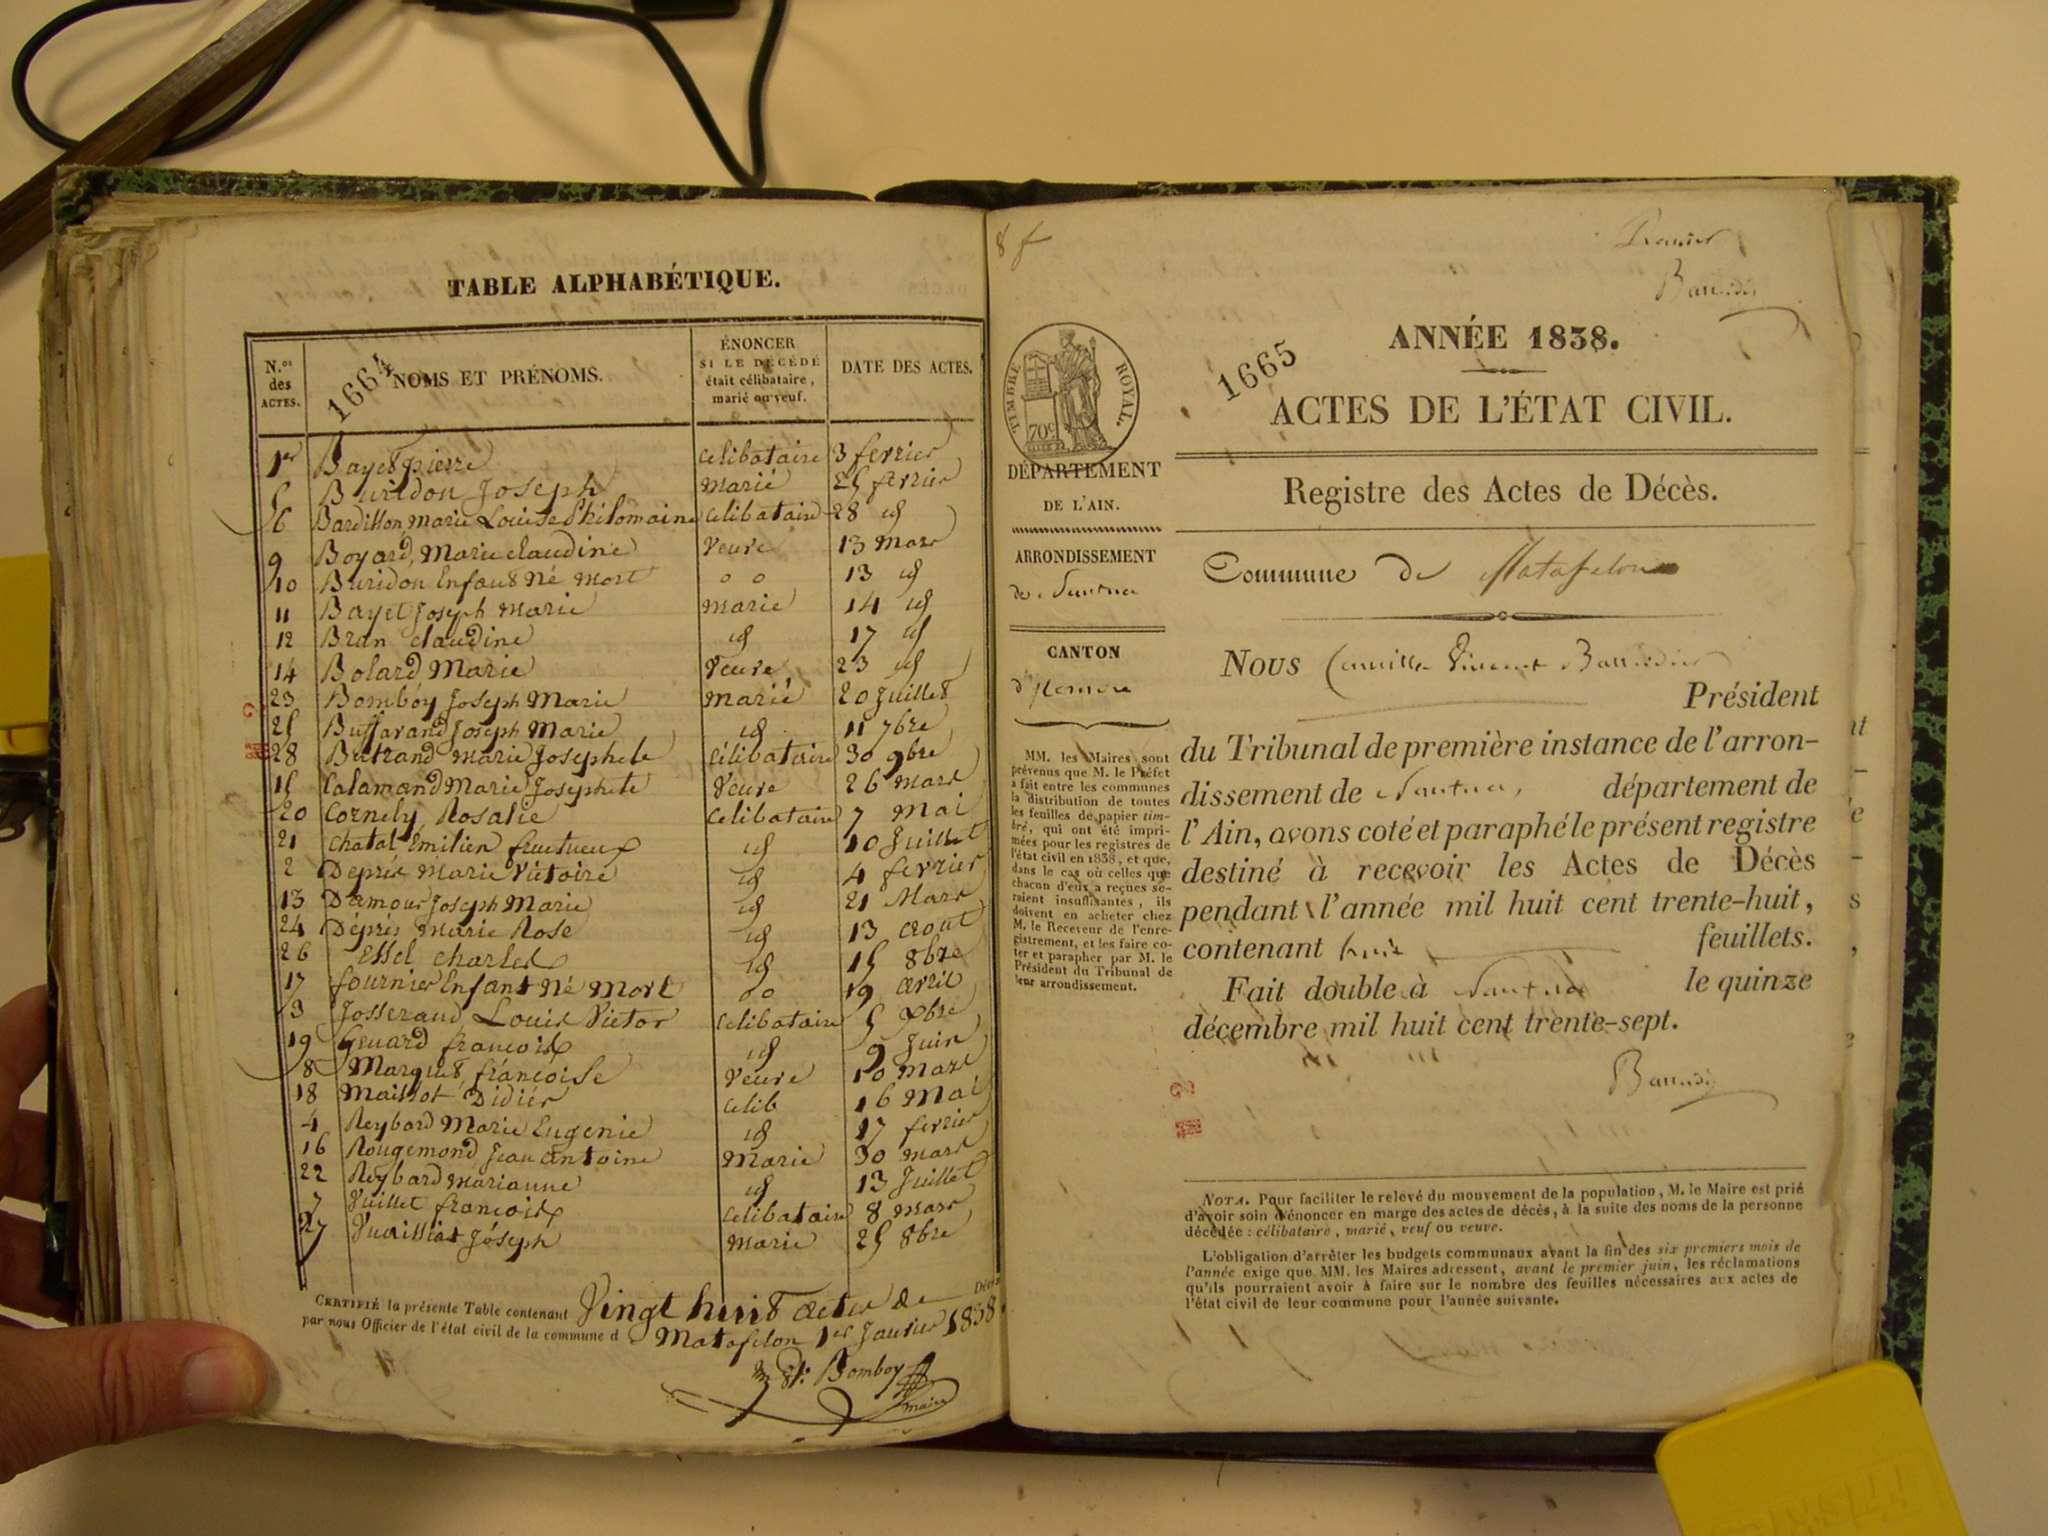 TABLE ALPHABÉTIQUE.
N.os des ACTES.
1664
NOMS ET PRÉNOMS.
ÉNONCER
SI LE DÉCÉDÉ
était célibataire,
marié ou veuf.
DATE DES ACTES.
1er Bayet pierre celibataire 3 fevrier
5 Buridon Joseph marié 25 fevrier
6 Bardillon, marie Louise Philomaine celibataire 28 id
9 Boyard, Marie claudine Veuve 13 mars
10 Buridon Enfant Né Mort 0 0 13 id
11 Bayet Joseph Marie marié 14 id
12 Bran claudine id 17 id
14 Bolard Marie Veuve 23 id
23 Bomboy Joseph Marie marié 20 Juillet
25 Buffavand Joseph Marie id 11 7bre
28 Butrand Marie Josephete Célibataire 30 9bre
15 Calamand Marie Josephete Veuve 26 mars
20 Cornely Rosalie Celibataire 7 Mai
21 chatal Emilien fructueux id 10 Juillet
2 Deprés Marie Victoire id 4 fevrier
13 Damour Joseph Marie id 21 Mars
24 Déprés Marie Rose id 13 aout
26 Essel charles id 15 8bre
17 fournier Enfant Né Mort 00 19 avril
3 Josserand Louis Victor Celibataire 5 Xbre
19 Genard francois id 9 Juin
8 Marquet françoise Veuve 10 mars
18 Maillot Didier celib 16 Mai
4 Reybard Marie Eugenie id 17 fevrier
16 Rougemond Jean antoine Marié 30 mars
22 Reybard marianne id 13 Juillet
7 Vuillet francois Celibataire 8 mars
27 Vuaillat Joseph Marie 25 8bre
CERTIFIÉ la présente Table contenant Vingt huit actes de Décès
par nous Officier de l'état civil de la commune d Matafelon 1er Janvier 1838.
Bomboy
maire
8 f
Premier
TIMBRE ROYAL.
70c
1665
ANNÉE 1838.
ACTES DE L'ÉTAT CIVIL.
DÉPARTEMENT
DE L'AIN.
ARRONDISSEMENT
de Nantua
CANTON
d'
MM. les Maires sont
prévenus que M. le Préfet
a fait entre les communes
la distribution de toutes
les feuilles de papier tim-
bré, qui ont été impri-
mées pour les registres de
l'état civil en 1838, et que,
dans le cas où celles que
chacun d'eux a reçues se-
raient insuffisantes, ils
doivent en acheter chez
M. le Receveur de l'enre-
gistrement, et les faire co-
ter et parapher par M. le
Président du Tribunal de
leur arrondissement.
Registre des Actes de Décès.
Commune de Matafelon
Nous Camille Vincent
Président
du Tribunal de première instance de l'arron-
dissement de Nantua, département de
l'Ain, avons coté et paraphé le présent registre
destiné à recevoir les Actes de Décès
pendant l'année mil huit cent trente-huit,
contenant huit feuillets.
Fait double à Nantua le quinze
décembre mil huit cent trente-sept.
NOTA. Pour faciliter le relevé du mouvement de la population, M. le Maire est prié
d'avoir soin d'énoncer en marge des actes de décès, à la suite des noms de la personne
décédée : célibataire, marié, veuf ou veuve.
L'obligation d'arrêter les budgets communaux avant la fin des six premiers mois de
l'année exige que MM. les Maires adressent, avant le premier juin, les réclamations
qu'ils pourraient avoir à faire sur le nombre des feuilles nécessaires aux actes de
l'état civil de leur commune pour l'année suivante.